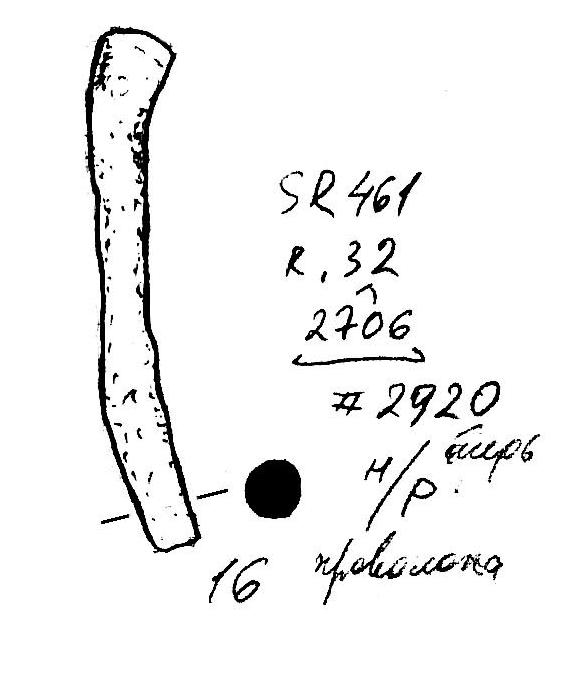 SR 461
R. 32
2706
# 2920
н/р
16 проволока